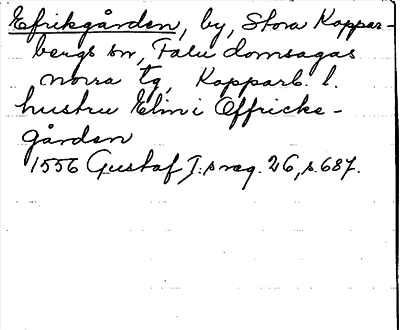 Efrikgården, by, Stora Koppar-
bergs sn, Falu domsagas
norra tg, Kopparb. l.
hustru Elin i Effricke-
gården
1556 Gustaf I:s reg. 26, s. 687.